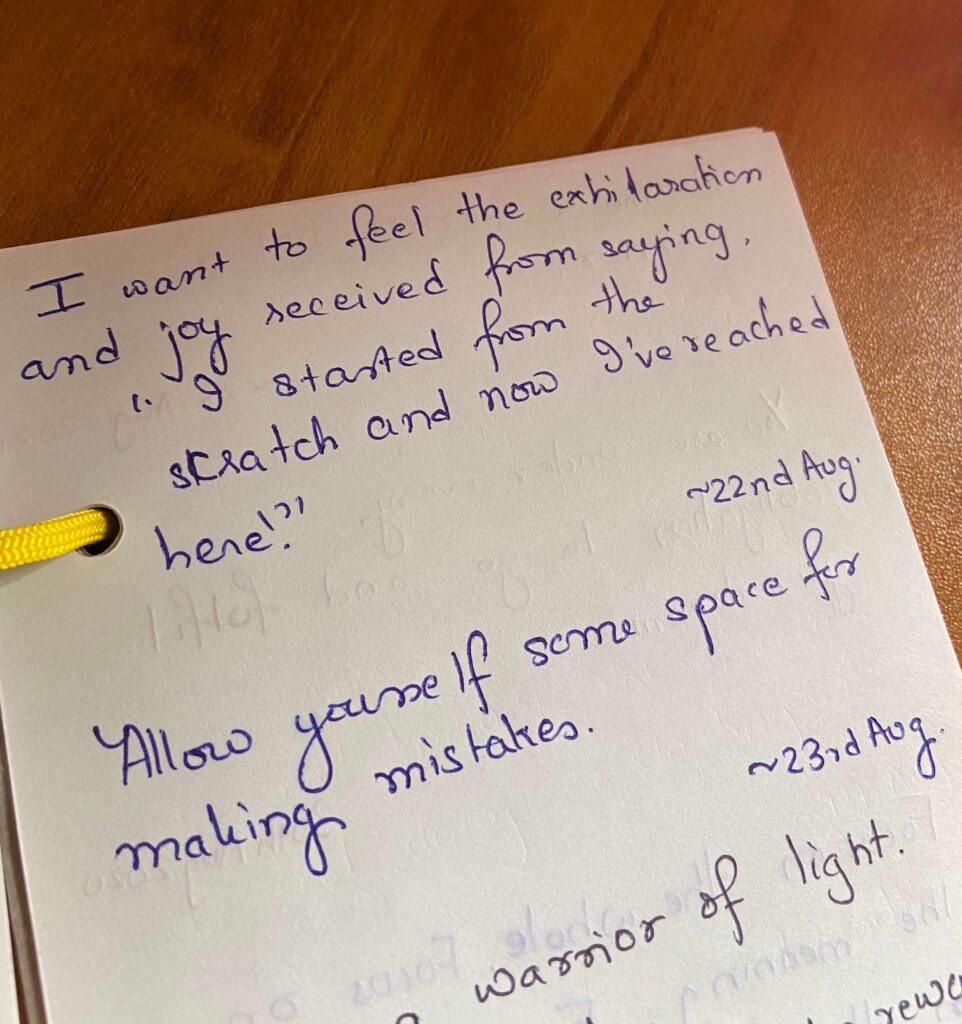 I want to feel the exhilaration
and joy received from saying,
"I started from the
scratch and now I've reached
here!?"
~22nd Aug.
Allow yourself some space for
making mistakes.
~23rd Aug.
warrior of light.